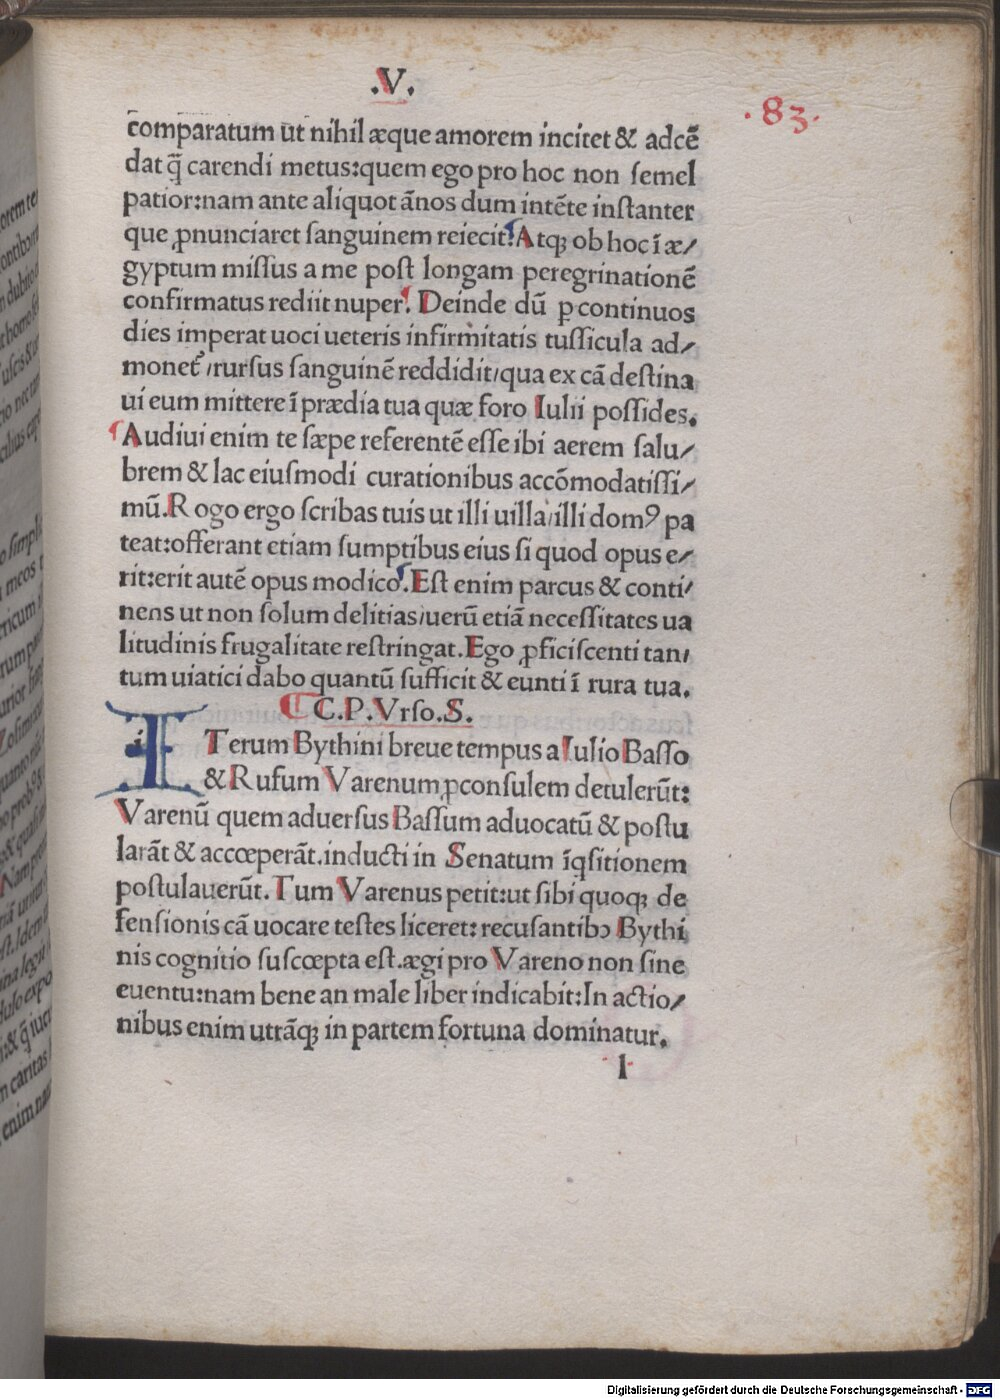 .V.
.83.
comparatum ut nihil æque amorem incitet & adcē
dat q̄ carendi metus:quem ego pro hoc non ſemel
patior:nam ante aliquot ānos dum intēte inſtanter
que ꝓnunciaret ſanguinem reiecit. Atq; ob hoc ī æ/
gyptum miſſus a me poſt longam peregrinationē
confirmatus rediit nuper. Deinde dū ꝑ continuos
dies imperat uoci ueteris infirmitatis tuſſicula ad/
monet᷑ /rurſus ſanguinē reddidit/qua ex cā deſtina
ui eum mittere ī prædia tua quæ foro Iulii poſſides.
Audiui enim te ſæpe referentē eſſe ibi aerem ſalu/
brem & lac eiuſmodi curationibus accōmodatiſſi/
mū.R ogo ergo ſcribas tuis ut illi uilla/illi domꝰ pa
teat:offerant etiam ſumptibus eius ſi quod opus e/
rit:erit autē opus modico. Eſt enim parcus & conti/
nens ut non ſolum delitias/uerū etiā neceſſitates ua
litudinis frugalitate reſtringat. Ego ꝓficiſcenti tan/
tum uiatici dabo quantū ſufficit & eunti ī rura tua.
C.P.Vrſo.S.
I Terum Bythini breue tempus a Iulio Baſſo
& Rufum Varenum ꝓconſulem detulerūt:
Varenū quem aduerſus Baſſum aduocatū & poſtu
larāt & accœperāt.inducti in Senatum īqſitionem
poſtulauerūt. Tum Varenus petit:ut ſibi quoq; de
fenſionis cā uocare teſtes liceret: recuſantibɔ Bythi
nis cognitio ſuſcœpta eſt.ægi pro Vareno non ſine
euentu:nam bene an male liber indicabit:In actio/
nibus enim utrāq; in partem fortuna dominatur.
l
Digitalisierung gefördert durch die Deutsche Forschungsgemeinschaft - DFG